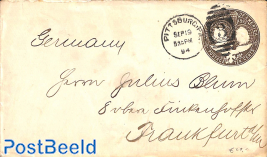 PITTSBURG, PA
SEP 19
5 30 PM
94
Germany
Herrn Julius Blum
Frankfurt a/M
PostBeeld